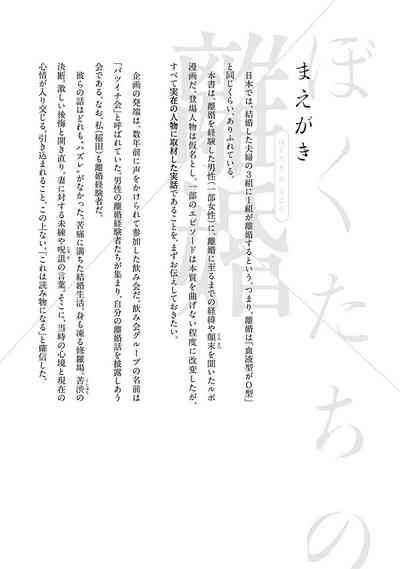 ぼくたちの
離婚
まえがき
日本では、結婚した夫婦の3組に1組が離婚するという。つまり、離婚は「血液型がO型」
と同じくらい、ありふれている。
本書は、離婚を経験した男性(一部女性)に、離婚に至るまでの経緯や顛末を聞いたルポ
漫画だ。登場人物は仮名とし、一部のエピソードは本質を曲げない程度に改変したが、
すべて実在の人物に取材した実話であることを、まずお伝えしておきたい。
企画の発端は、数年前に声をかけられて参加した飲み会だ。飲み会グループの名前は
「バツイチ会」と呼ばれていた。男性の離婚経験者たちが集まり、自分の離婚話を披露しあう
会である。なお、私(稲田)も離婚経験者だ。
彼らの話はどれも、“ハズレ”がなかった。苦痛に満ちた結婚生活。身も凍る修羅場。苦渋の
決断。激しい後悔と開き直り。妻に対する未練や呪詛の言葉。そこに、当時の心境と現在の
心情が入り交じる。引き込まれること、この上ない。「これは読み物になる」と確信した。